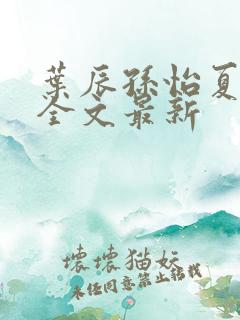 葉辰孫怡夏
全文最新
壞壞猫妖
未经同意禁止转载